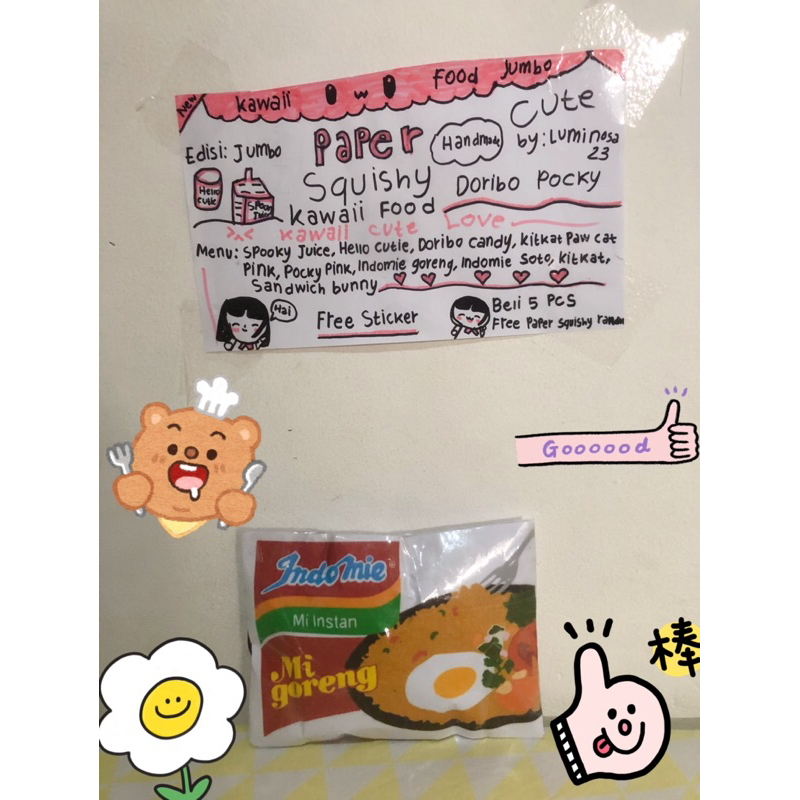 New
kawaii Food Jumbo
Cute
Edisi: Jumbo
Paper
Handmade
by: Luminosa
23
Squishy
Doribo Pocky
Hello
cutie
Spooky
Juice
kawaii Food
kawaii cute Love
Menu: Spooky Juice, Hello cutie, Doribo candy, kitkat Paw cat
Pink, Pocky Pink, Indomie goreng, Indomie Soto, kitkat,
Sandwich bunny
Hai
Free Sticker
Beli 5 PCS
Free Paper Squishy random
Goooood
Indomie
Mi Instan
Mi
goreng
棒